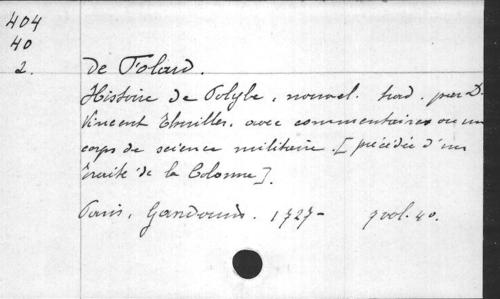 404
40
2.
de Folard.
Histoire de Polybe, nouvel. trad. par D.
Vincent Thuillier, avec commentaires ou un
corps de science militaire. [précédée d'un
Traité de la Colonne].
Paris, Gandouin. 1727- 7 vol. 40.